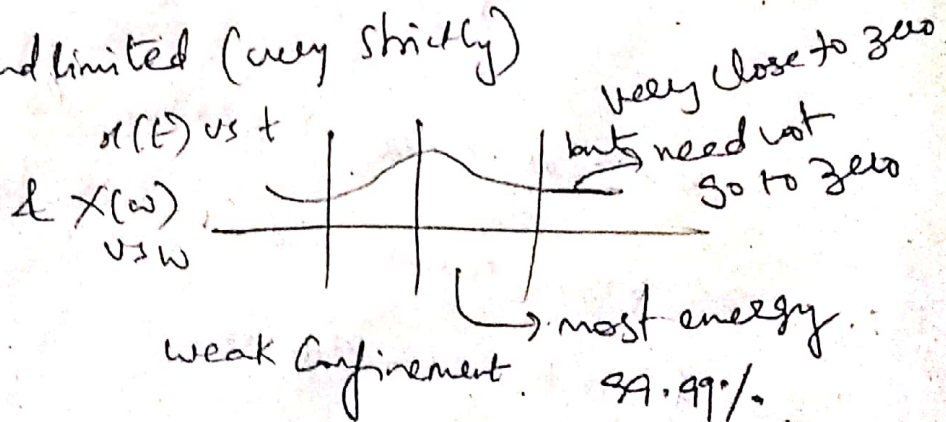 nd limited (very strictly)
x(t) vs t
& X(ω)
vs ω
very close to zero
but need not
go to zero
most energy
weak Confinement.
99.99%.